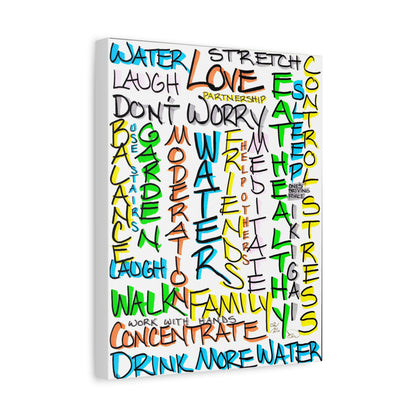 WATER
STRETCH
LAUGH
LOVE
PARTNERSHIP
DON'T WORRY
BALANCE
USE STAIRS
GARDEN
MODERATION
WATER
FRIENDS
HELP OTHERS
MEDITATE
EAT HEALTHY
SLEEP
IKIGAI
CONTROL STRESS
LAUGH
WALK
FAMILY
WORK WITH HANDS
CONCENTRATE
DRINK MORE WATER